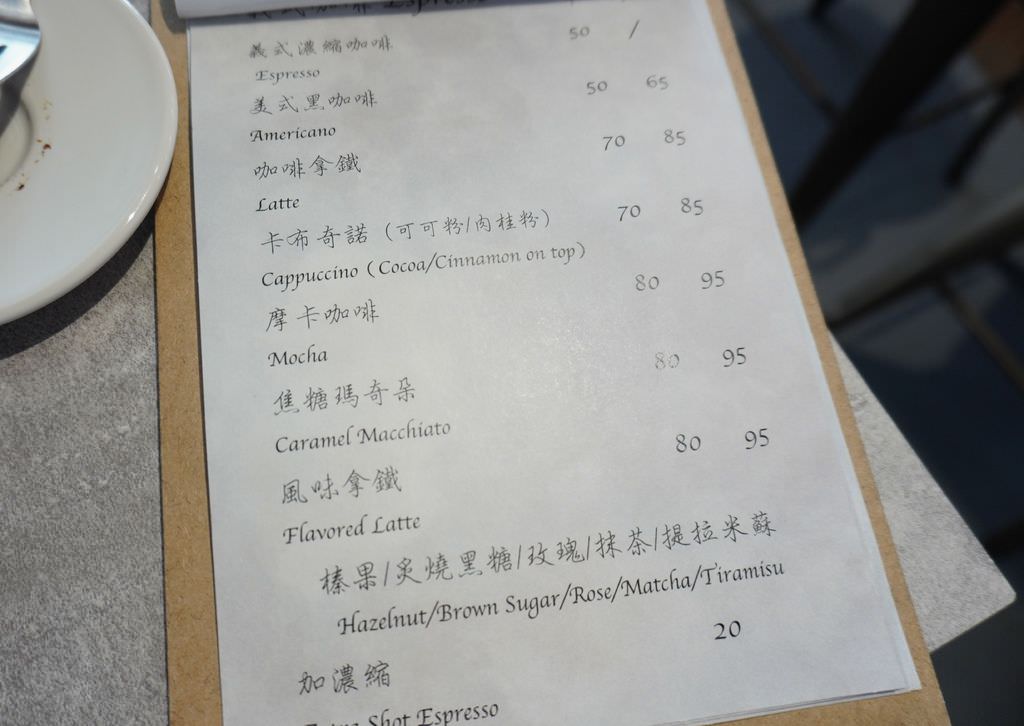 Espresso
義式濃縮咖啡 50 /
Espresso
美式黑咖啡 50 65
Americano
咖啡拿鐵 70 85
Latte
卡布奇諾（可可粉/肉桂粉） 70 85
Cappuccino (Cocoa/Cinnamon on top)
摩卡咖啡 80 95
Mocha
焦糖瑪奇朵 80 95
Caramel Macchiato
風味拿鐵 80 95
Flavored Latte
榛果/炙燒黑糖/玫瑰/抹茶/提拉米蘇
Hazelnut/Brown Sugar/Rose/Matcha/Tiramisu
加濃縮 20
Extra Shot Espresso